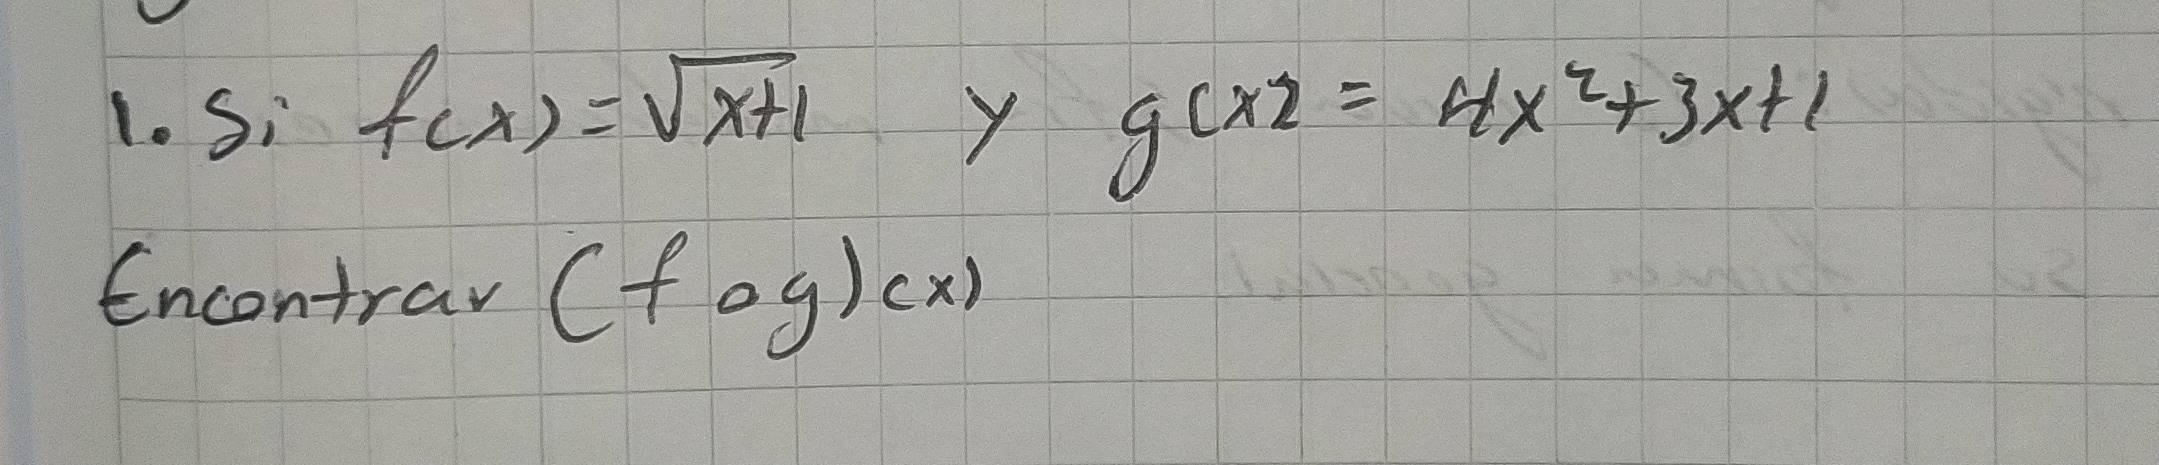 1. Si f(x) = √x+1 y g(x) = 4x²+3x+1
Encontrar (f o g)(x)